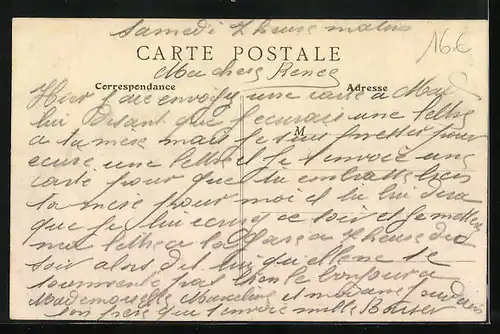 Samedi 7 heure matin
16€
CARTE POSTALE
Ma chere Renee
Correspondance
Adresse
Hier j'ai envoyé une carte a
lui disant que j'ecrirais une lettre
M
a ta mere mais je suis presser pour
ecrire une lettre et je t'envoie une
carte pour que tu embrasse bien
ta mere pour moi et tu lui dira
que je lui ecrirai ce soir et je mettrai
ma lettre a la gare a 7 heure du
soir alors dit lui qu'elle ne se
tourmente pas bien le bonjour a
Mademoiselle et madame
ton pere qui t'envoie mille Baiser